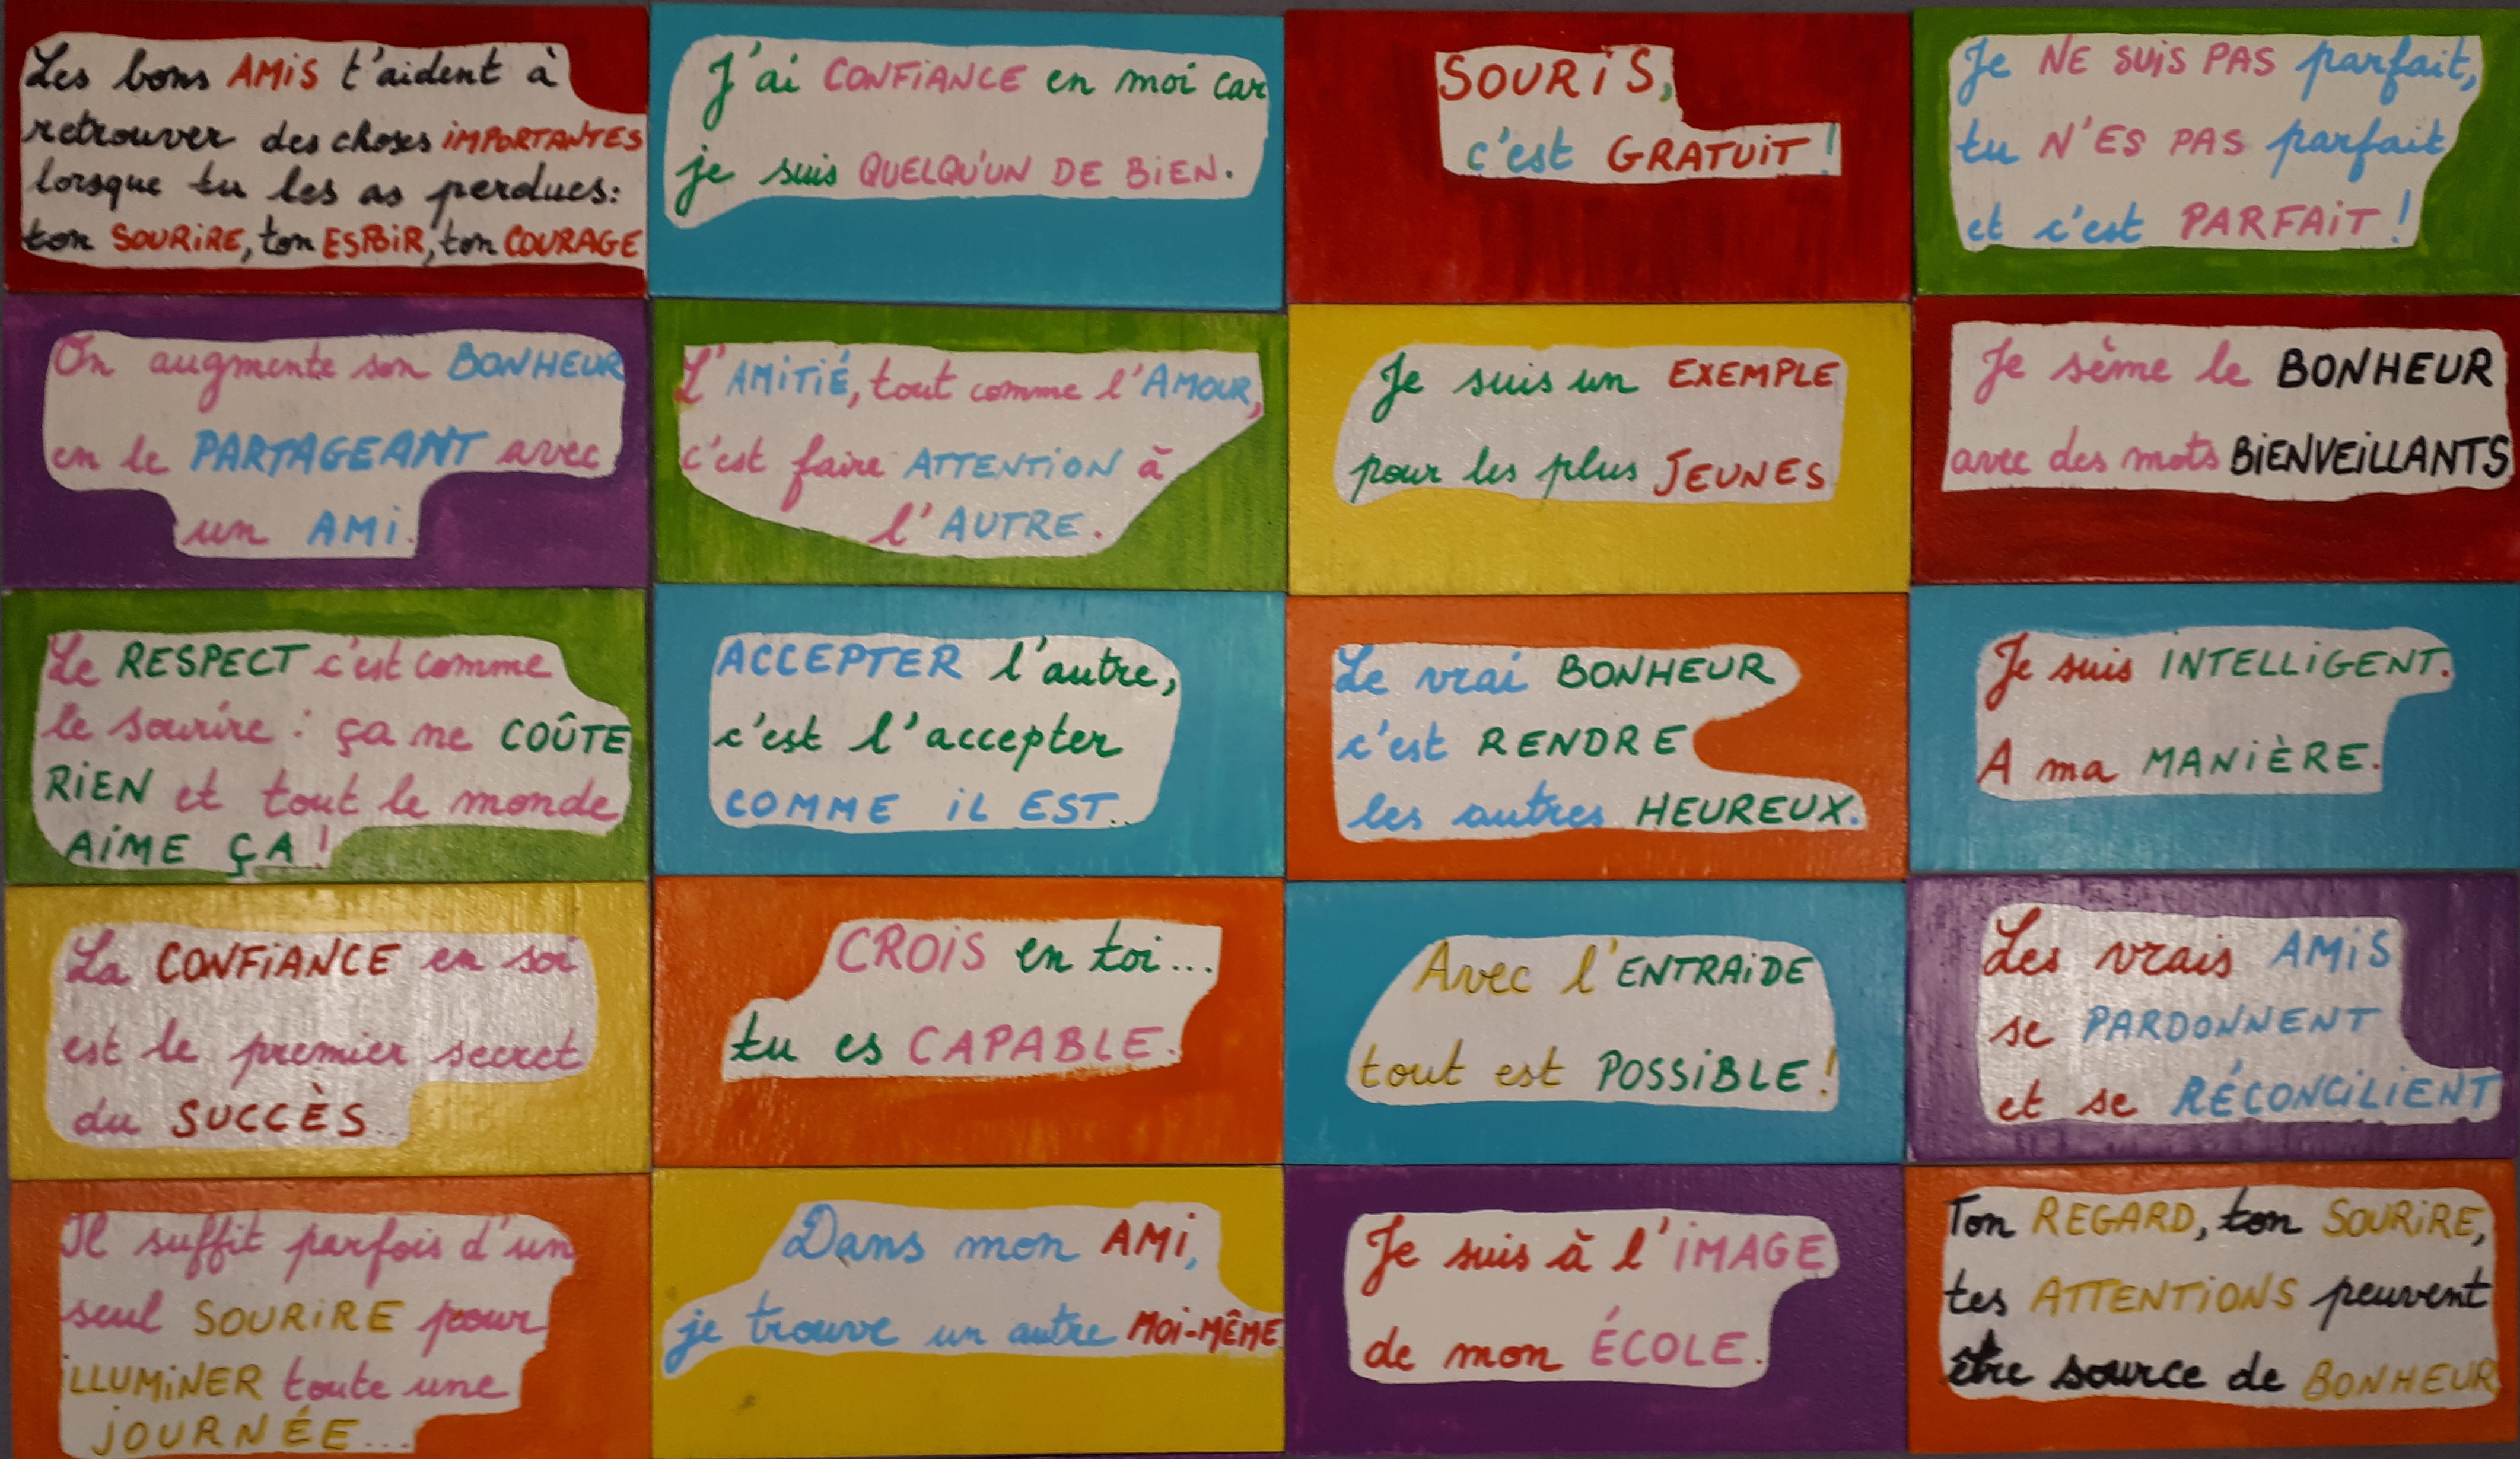 Les bons AMiS t'aident à
retrouver des choses iMPORTANTES
lorsque tu les as perdues:
ton SOURiRE, ton ESPOiR, ton COURAGE
J'ai CONFiANCE en moi car
je suis QUELQU'UN DE BiEN.
SOURiS,
c'est GRATUiT!
Je NE SUiS PAS parfait,
tu N'ES PAS parfait
et c'est PARFAiT!
On augmente son BONHEUR
en le PARTAGEANT avec
un AMi.
L'AMiTiÉ, tout comme l'AMOUR,
c'est faire ATTENTiON à
l'AUTRE.
Je suis un EXEMPLE
pour les plus JEUNES
Je sème le BONHEUR
avec des mots BiENVEiLLANTS
Le RESPECT c'est comme
le sourire : ça ne COÛTE
RiEN et tout le monde
AiME ÇA!
ACCEPTER l'autre,
c'est l'accepter
COMME iL EST..
Le vrai BONHEUR
c'est RENDRE
les autres HEUREUX.
Je suis INTELLiGENT.
A ma MANiÈRE.
La CONFiANCE en soi
est le premier secret
du SUCCÈS..
CROiS en toi...
tu es CAPABLE.
Avec l'ENTRAiDE
tout est POSSiBLE!
Les vrais AMiS
se PARDONNENT
et se RÉCONCiLiENT
Il suffit parfois d'un
seul SOURiRE pour
iLLUMiNER toute une
JOURNÉE...
Dans mon AMi,
je trouve un autre MOi-MÊME
Je suis à l'iMAGE
de mon ÉCOLE.
Ton REGARD, ton SOURiRE,
tes ATTENTiONS peuvent
être source de BONHEUR